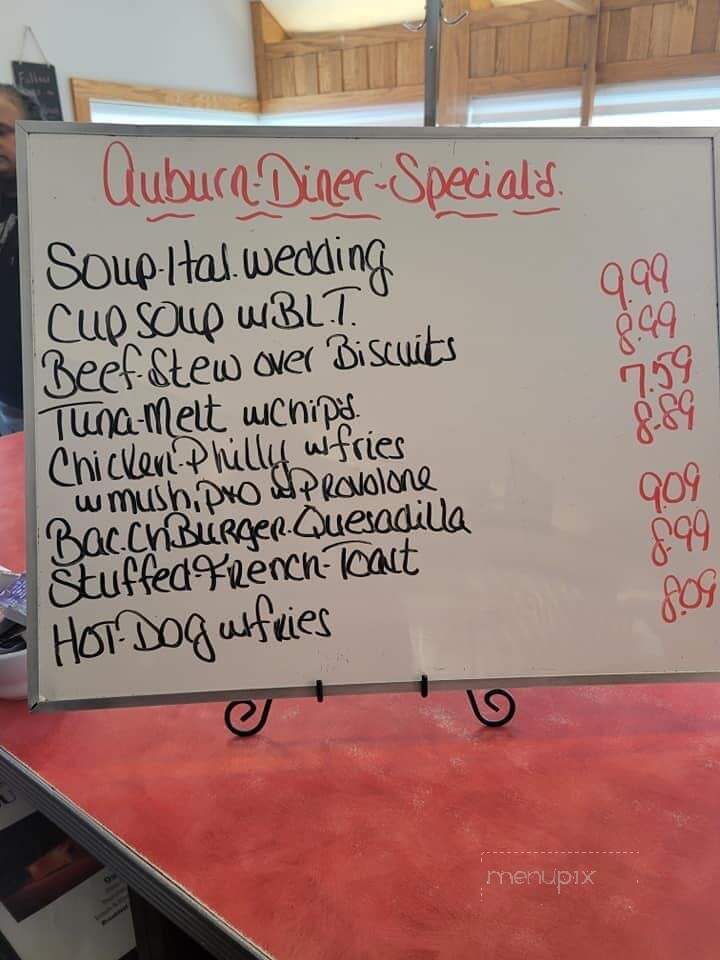 Follow
Auburn-Diner-Special's.
Soup-Ital. wedding
Cup soup w BLT. 9.99
Beef-Stew over Biscuits 8.99
Tuna-Melt w chip's. 7.59
Chicken-Philly w fries 8.89
w mush, pro w Provolone
Bac.Ch.Burger-Quesadilla 9.09
Stuffed-French-Toast 8.99
Hot-Dog w fries 8.09
menupix